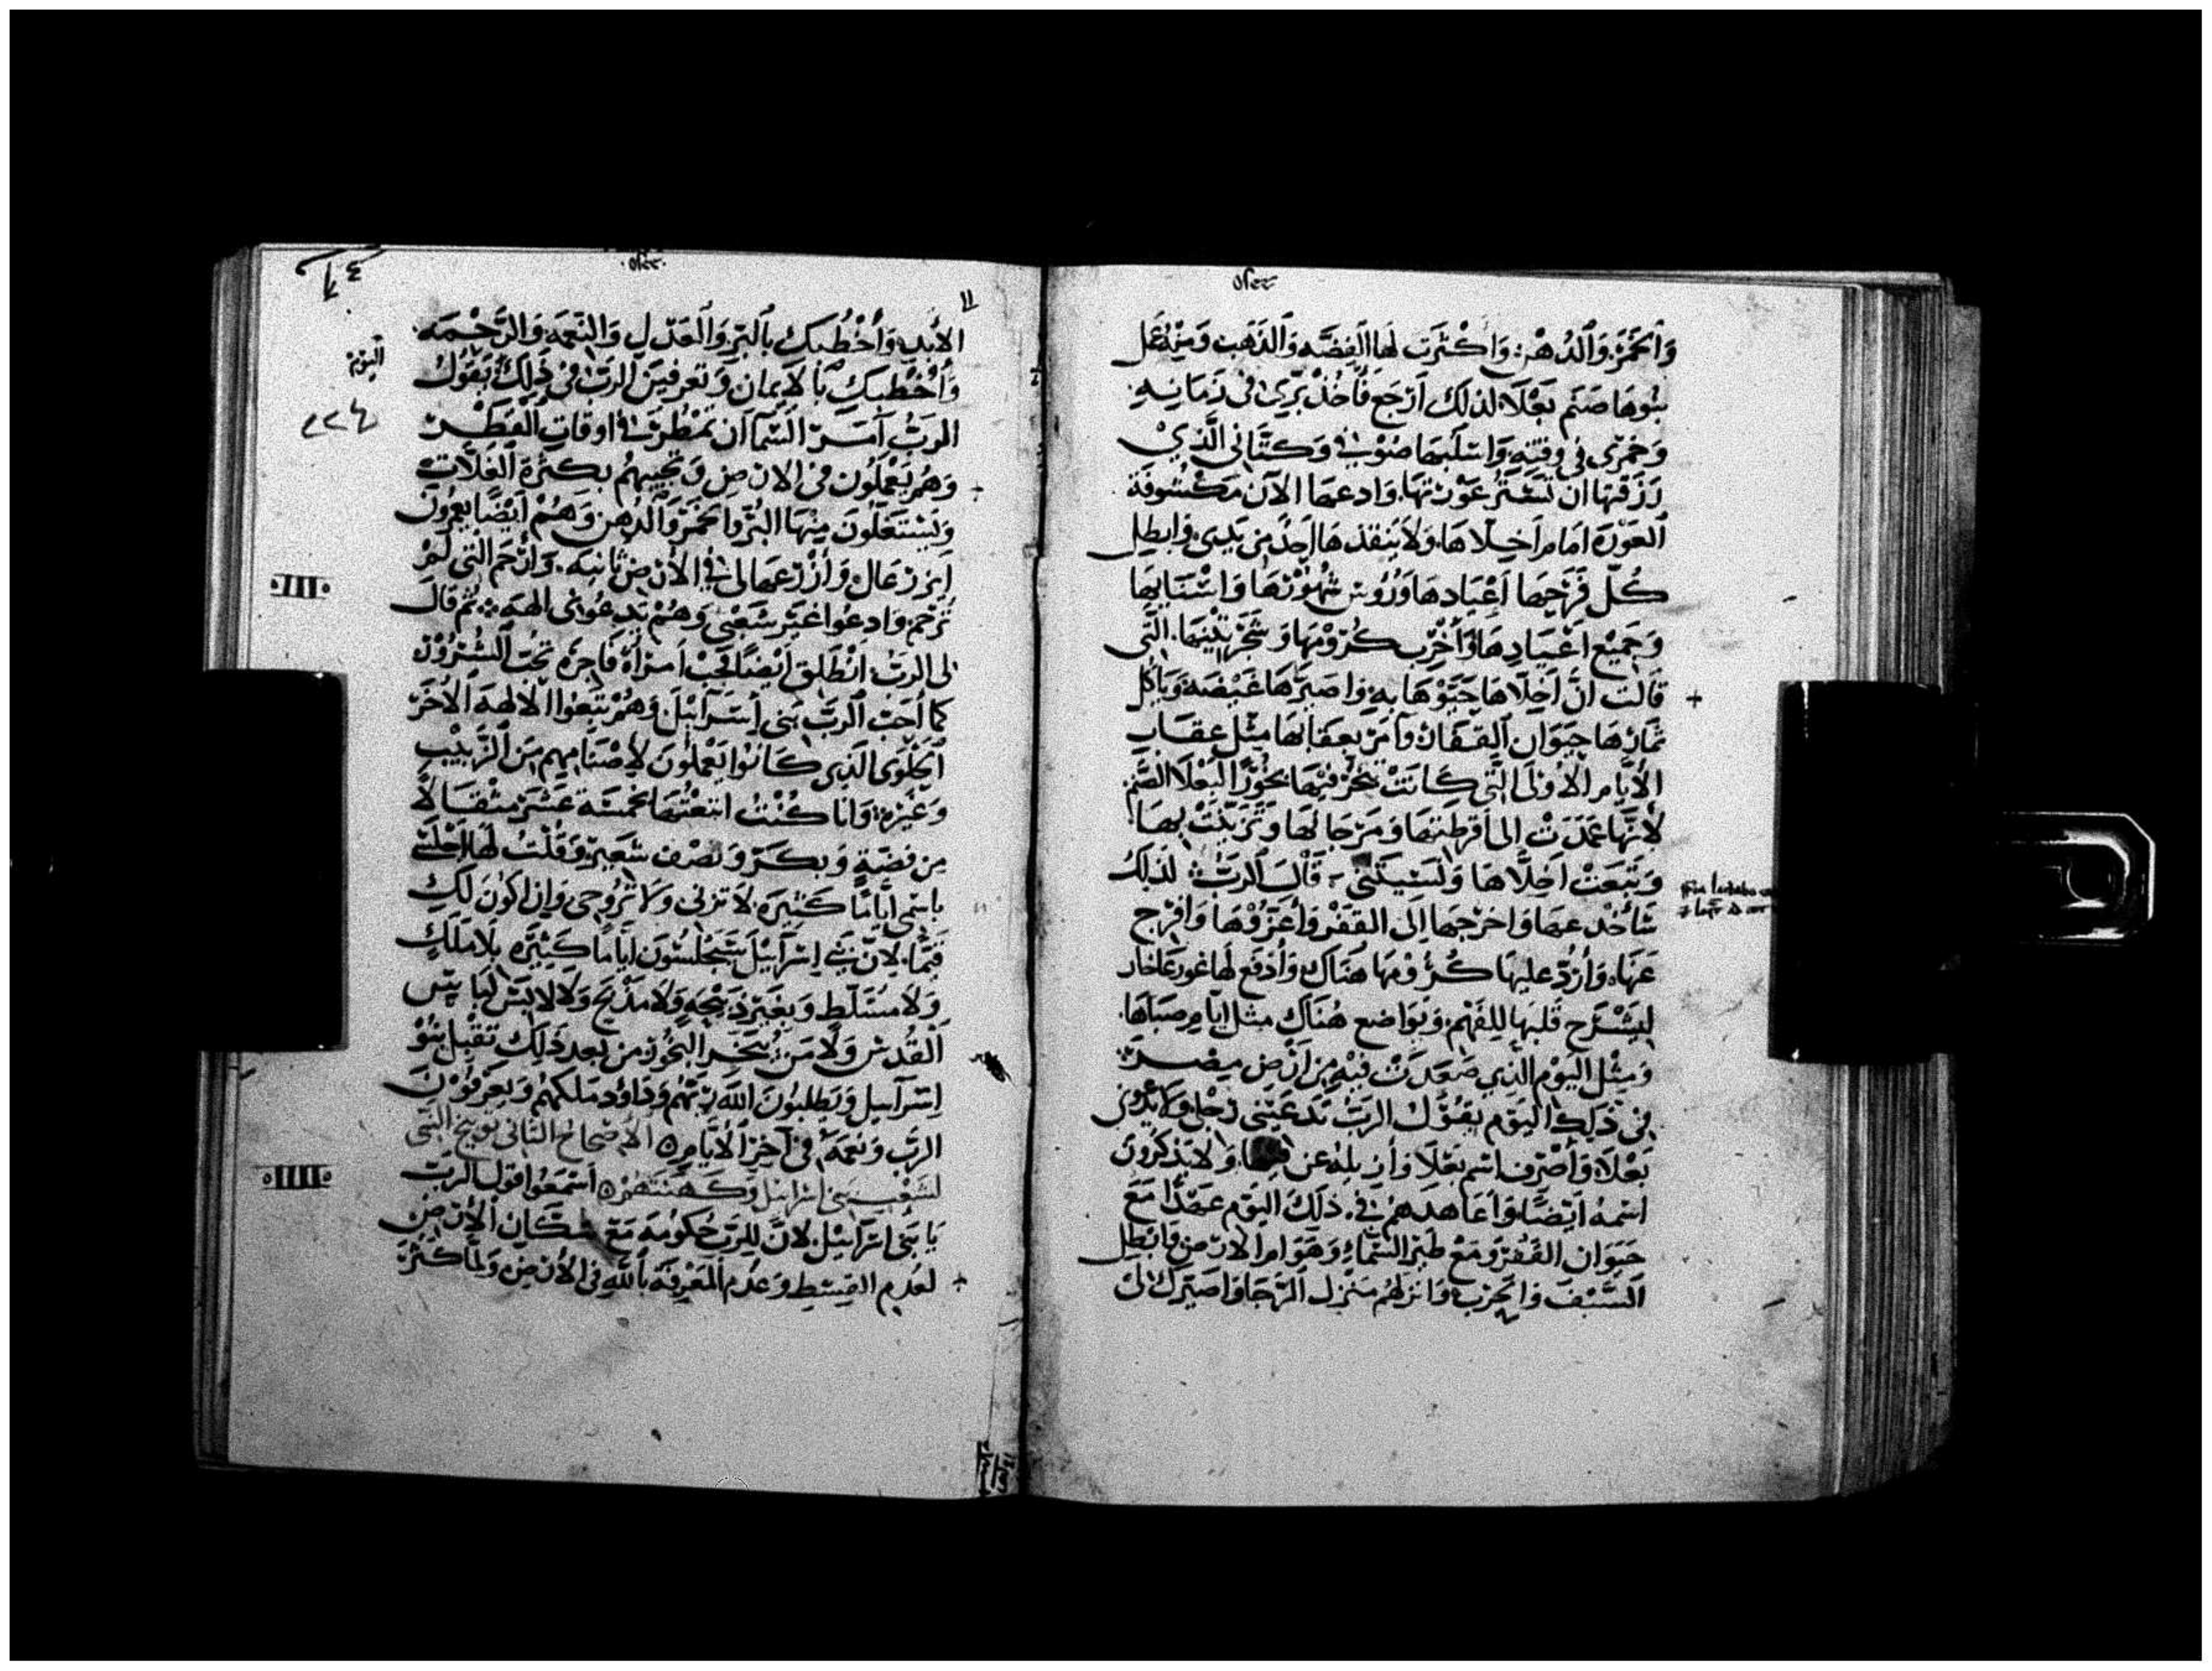 وَالخَمْرَ وَالدُهْن وَاكْثَرت لهَا الفِضّه وَالذَهَب وَمِنْهُ عَمَل
بنُوهَا صَنَم بَعْلَا لذلك ارْجَع فَأَخُذْ بُرِّي فى زَمَانِهِ
وَخَمْرى فى وقتهِ وَاسْلبهَا صُوْفى وَكتَّانى الَّذِيْ
رَزَقتهَا ان تَسْتُر عَوْرتهَا وَادعهَا الآنَ مَكْشُوفَة
العَوْرَة امَام اخِلّاهَا وَلَا يَنْقذهَا احَدٌ مِن يَدِي وَابطِل
كُلّ فَرَحِهَا اعْيَادهَا وَرُؤوس شُهُوْرهَا وَاسْبَاتهَا
وَجَمِيْع اعْيَادِهَا وَأُخْرب كُرُوْمهَا وَشَجَر تِيْنِهَا الَّتى
قَالَت انَّ اخِلَّاهَا حَبَوْهَا بهِ وَاصَيّرهَا غَيْضَه وَيَاكُل
ثمَارهَا حَيوَان القفَار وَآمر بعقَابهَا مثْل عِقَاب
الأيَّام الأولَى الّتى كَانَتْ تبخّرْ فيْهَا بخُوْرًا لبَعْلَا الصَّنم
لَانّهَا عَمَدَتْ إلى اقرطتهَا وَمَرْجَانهَا وَتَزَيّنَتْ بهَا
وَتبَعَتْ اخِلَّاهَا وَنَسيَتنى قَالَ الربّ لذلكَ
سَأخُدعهَا وَاخرجهَا إلَى القفْر وَأُعَزّوْهَا وَافرْج
عَنهَا وَأردّ عليهَا كُرُوْمهَا هنَاك وَأدْفَع لهَا غور عَاخار
ليَشْرَح قَلبهَا للِفَهْم وَتَوَاضع هُنَاك مثل ايَّام صبَاهَا
وَمِثْل اليَوْم الذِي صَعدَتْ فيْهِ مِن ارْض مِصْر
فى ذلِكَ اليَوْم يقُوْل الربّ تَدعيْنى رجُلى وَلَا تَدْعِينى
بَعْلَا وَأصْرف اسْم بَعْلَا وَأزيله عن فمهَا وَلَا يَذكرُونَ
اسْمهُ ايْضًا وَأعَاهدهُم فى ذلكَ اليَوْم عَهْدًا مَعَ
حَيوَان القَفْر وَمَعْ طَيْر السَّمَاء وَهَوَام الارض وَابْطِل
السَّيْف وَالحَرْب وَانزلهُم مَنْزِل الرَّجَا وَاصَيِّرك لى
الأبَد وَأخْطُبك بالبِرّ وَالعَدْل وَالنِّعمَه وَالرَّحْمَه
وَأُخْطبك بالَايمَان وَتعرفيْنَ الربّ فى ذَلكَ يَقُول
الربُّ آمر السَّمَآ ان تمْطُرَ فى أوقَاتِ القَطْر
وَهُم يَعْملُونَ فى الارض وَتجيبهُم بكثْرةَ الغلَّات
وَيَسْتَغلّونَ مِنْهَا البُرّ وَالخَمْرَ وَالدُهن وَهُمْ ايْضًا يعرفون
ايزرعَال وَأزْرعهَا لى فى الأرض ثَانيَه وَأرْحَم التى لَمْ
تُرْحَم وَادعُوا غيْر شَعْبى شَعْبى وَهُمْ يَدعُونى الهَهُم ثُمّ قالَ
لى الربّ انْطَلق ايْضًا فحبّ امرَأة فَاجِرَه تُحبّ الشُّرُوْر
كمَا أحَبّ الربّ بَنى إسْرَآئيْلَ وَهُمْ تبعُوا الالهَة الأُخَر
الحَلْوَى الَذِى كَانُوا يَعْملُونَ لِأصْنَامِهِم مِنَ الزّبيْبِ
وَغَيْره وَانا كُنْتُ ابتَعْتُهَا بخَمسَة عَشَر مثْقَالًا
مِن فضّةٍ وَبكرّ وَنصْف شَعيْر وَقلْتُ لهَا اجْلسى
باسْمى ايّامًا كَثيْرَه لا تزنى وَلَا تزوجى وَانا اكُونَ لَكِ
قيِّمًا لِانّ بَنى إسْرَآئيْل سَيَجْلسُونَ ايَّامًا كَثِيْرَه بِلَا مَلكٍ
وَلا مسَلّط وَبغيْر ذَبيْحِه وَلا مَذْبَح وَلا لابسْ لبَاسِ
القُدس وَلَا مَن يُبَخّر البخُور من بعد ذَلِكَ تقْبل بنُوْ
اسْرآييل وَيَطلبُونَ الله رَبّهُم وَدَاوُد مَلكهُم وَيعْرفُونَ
الربّ وَنعمَهُ فى آخِر الأيَّام ه الأضحَاح الثانى توبيخ النبى
لشعْب بَنى اسْرائيل وَكهنتهُمْ ه اسْمَعُوا قول الرّبّ
يَا بَنى اسْرَآئيْل لانّ للرّبّ حُكومَة مَعَ سُكّان الأرْض
لعَدَم القِسْط وَعَدَم المَعْرفَة باللهِ فى الأرض وَلمَّا كثُرَ